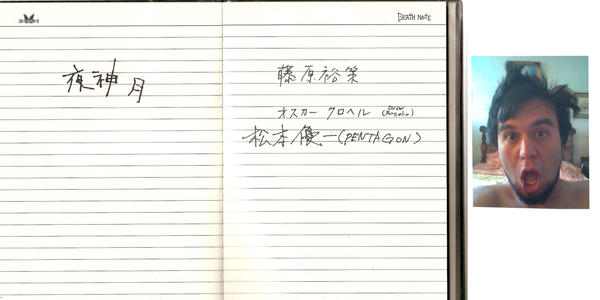 DEATH NOTE
夜神 月
藤原裕策
オスカー クロヘル
松本優一(PENTAGON)